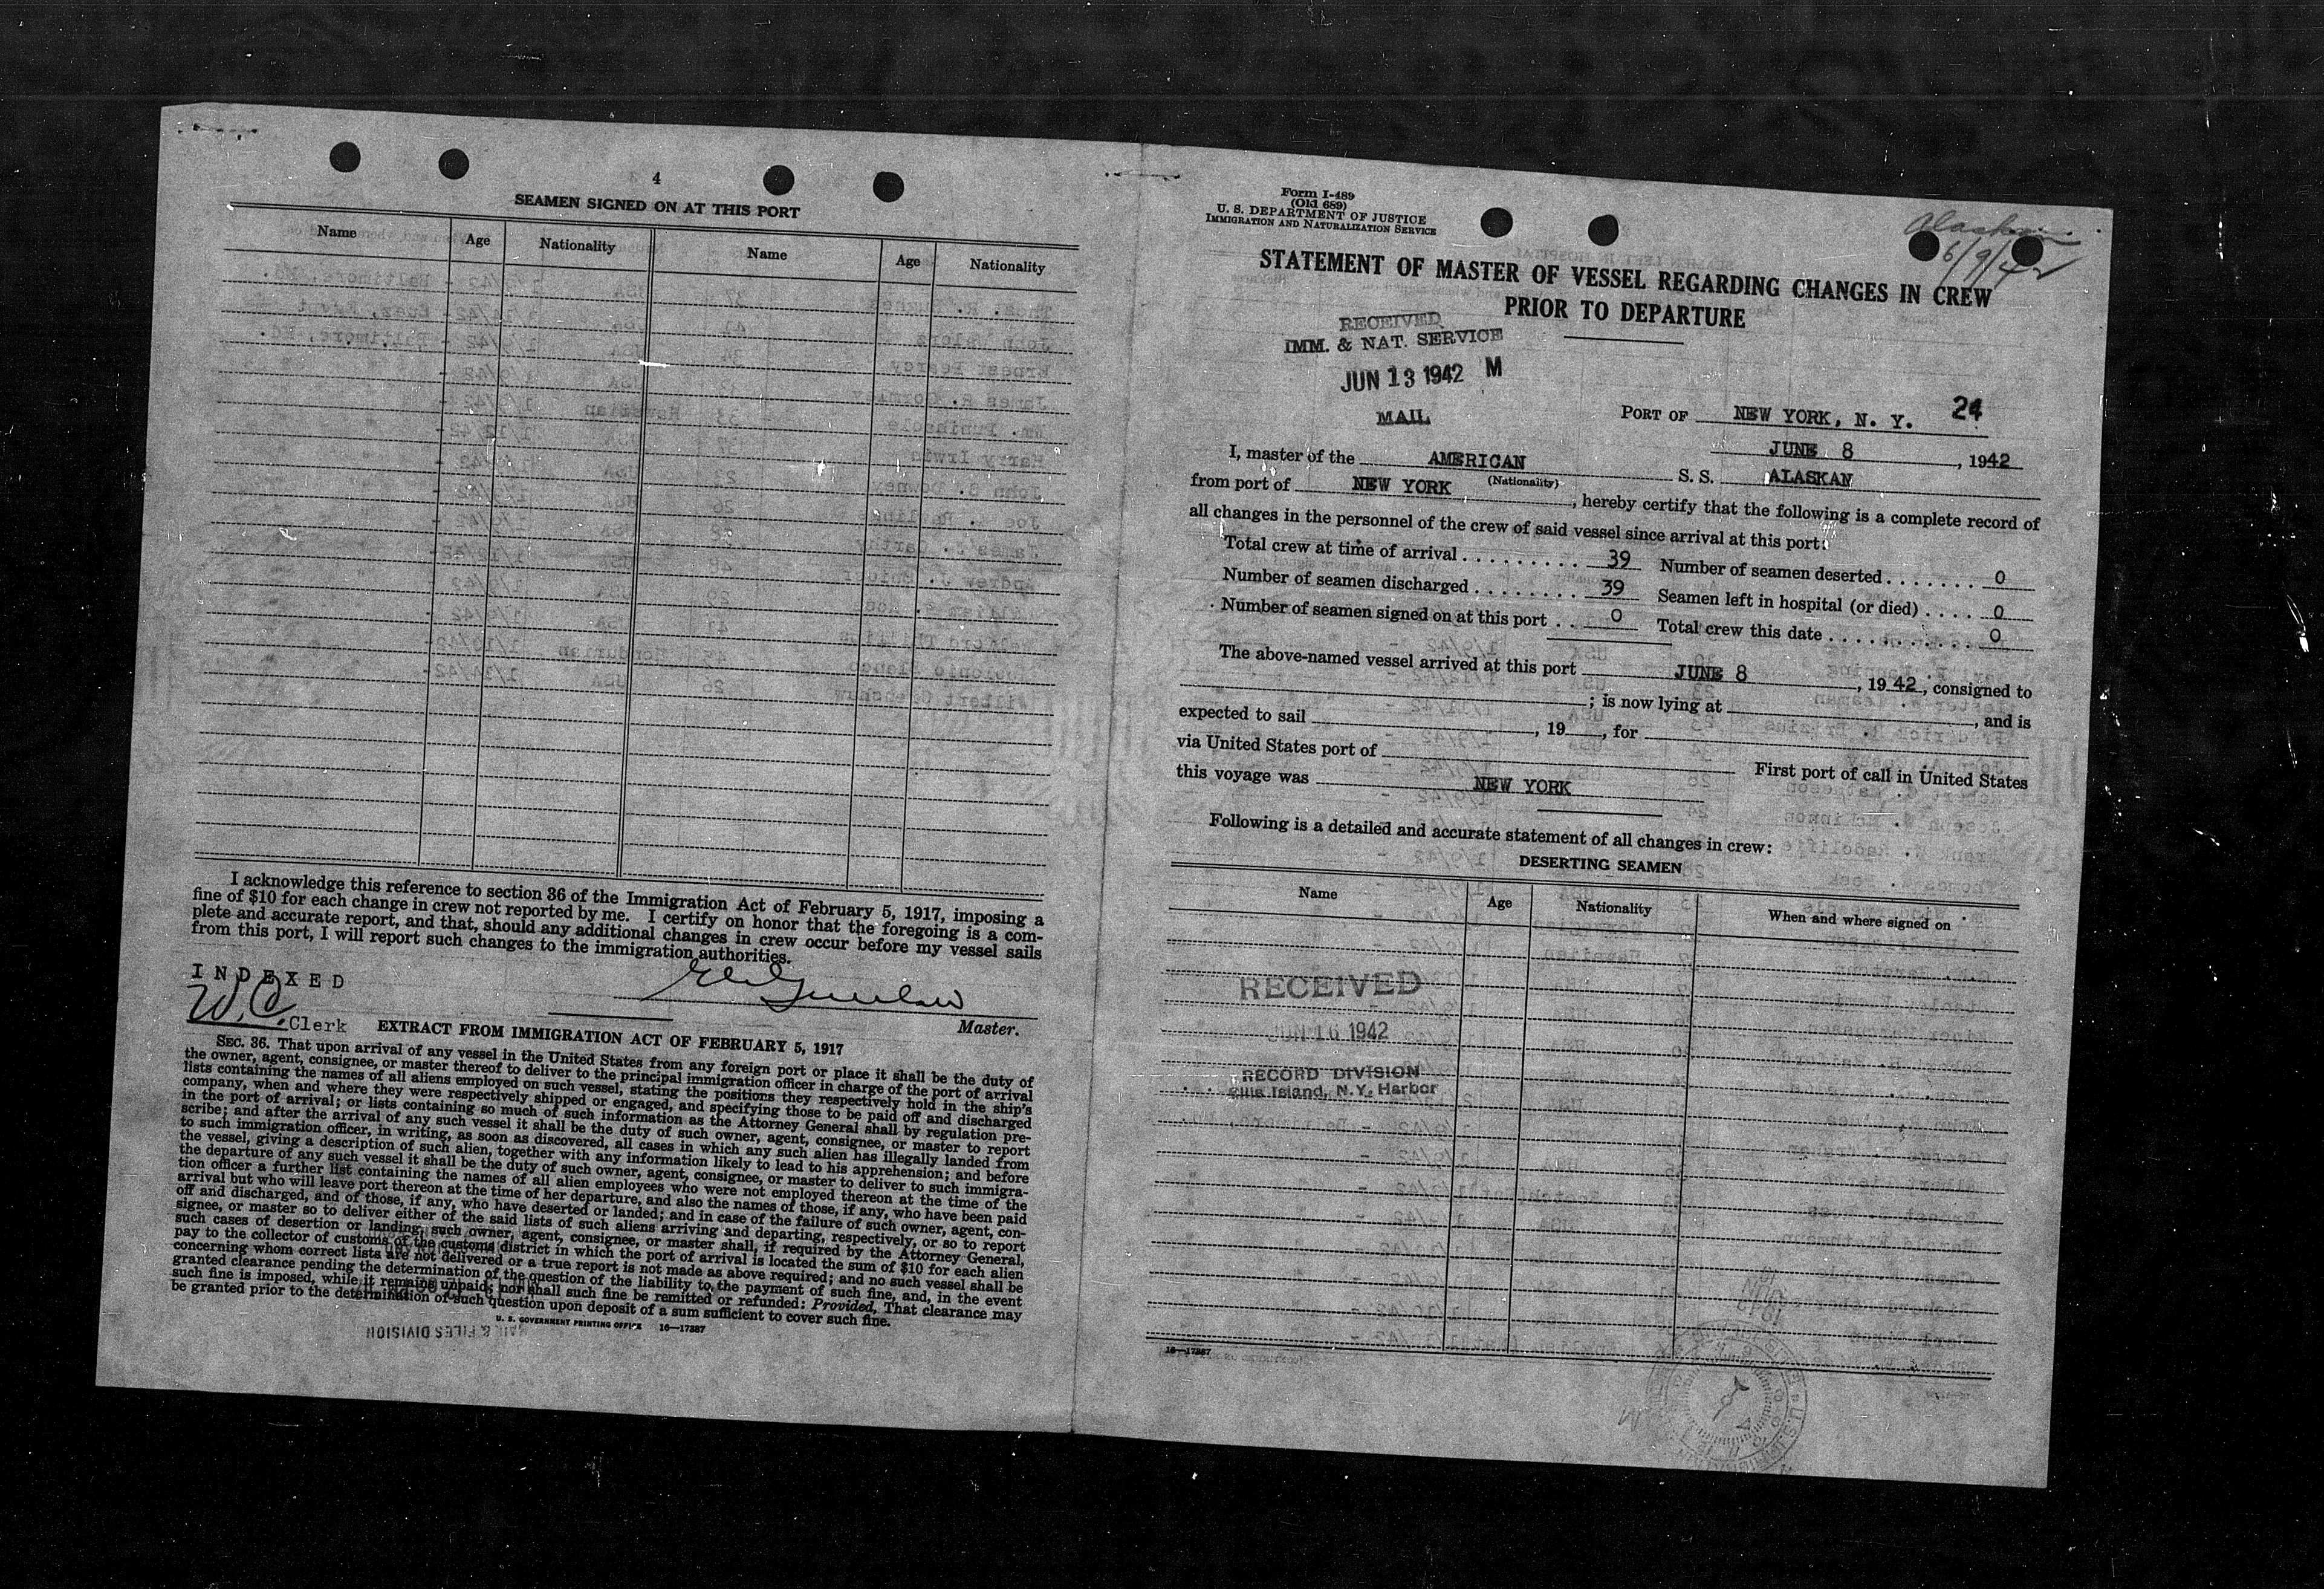 4
SEAMEN SIGNED ON AT THIS PORT
Name Age Nationality Name Age Nationality
I acknowledge this reference to section 36 of the Immigration Act of February 5, 1917, imposing a
fine of $10 for each change in crew not reported by me. I certify on honor that the foregoing is a com-
plete and accurate report, and that, should any additional changes in crew occur before my vessel sails
from this port, I will report such changes to the immigration authorities.
INDEXED
W.C. Clerk
Master.
EXTRACT FROM IMMIGRATION ACT OF FEBRUARY 5, 1917
SEC. 36. That upon arrival of any vessel in the United States from any foreign port or place it shall be the duty of
the owner, agent, consignee, or master thereof to deliver to the principal immigration officer in charge of the port of arrival
lists containing the names of all aliens employed on such vessel, stating the positions they respectively hold in the ship's
company, when and where they were respectively shipped or engaged, and specifying those to be paid off and discharged
in the port of arrival; or lists containing so much of such information as the Attorney General shall by regulation pre-
scribe; and after the arrival of any such vessel it shall be the duty of such owner, agent, consignee, or master to report
to such immigration officer, in writing, as soon as discovered, all cases in which any such alien has illegally landed from
the vessel, giving a description of such alien, together with any information likely to lead to his apprehension; and before
the departure of any such vessel it shall be the duty of such owner, agent, consignee, or master to deliver to such immigra-
tion officer a further list containing the names of all alien employees who were not employed thereon at the time of the
arrival but who will leave port thereon at the time of her departure, and also the names of those, if any, who have been paid
off and discharged, and of those, if any, who have deserted or landed; and in case of the failure of such owner, agent, con-
signee, or master so to deliver either of the said lists of such aliens arriving and departing, respectively, or so to report
such cases of desertion or landing, such owner, agent, consignee, or master shall, if required by the Attorney General,
pay to the collector of customs of the customs district in which the port of arrival is located the sum of $10 for each alien
concerning whom correct lists are not delivered or a true report is not made as above required; and no such vessel shall be
granted clearance pending the determination of the question of the liability to the payment of such fine, and, in the event
such fine is imposed, while it remains unpaid; nor shall such fine be remitted or refunded: Provided, That clearance may
be granted prior to the determination of such question upon deposit of a sum sufficient to cover such fine.
U. S. GOVERNMENT PRINTING OFFICE 16—17387
Form I-489
(Old 689)
U. S. DEPARTMENT OF JUSTICE
IMMIGRATION AND NATURALIZATION SERVICE
Alaskan
6/9/42
STATEMENT OF MASTER OF VESSEL REGARDING CHANGES IN CREW
PRIOR TO DEPARTURE
RECEIVED
IMM. & NAT. SERVICE
JUN 13 1942 M
MAIL
PORT OF NEW YORK, N. Y. 24
JUNE 8, 1942
I, master of the AMERICAN S. S. ALASKAN
(Nationality)
from port of NEW YORK, hereby certify that the following is a complete record of
all changes in the personnel of the crew of said vessel since arrival at this port:
Total crew at time of arrival 39 Number of seamen deserted 0
Number of seamen discharged 39 Seamen left in hospital (or died) 0
Number of seamen signed on at this port 0 Total crew this date 0
The above-named vessel arrived at this port JUNE 8, 1942, consigned to
; is now lying at , and is
expected to sail , 19 , for
via United States port of First port of call in United States
this voyage was NEW YORK
Following is a detailed and accurate statement of all changes in crew:
DESERTING SEAMEN
Name Age Nationality When and where signed on
RECEIVED
JUN 16 1942
RECORD DIVISION
Ellis Island, N.Y. Harbor
16—17387